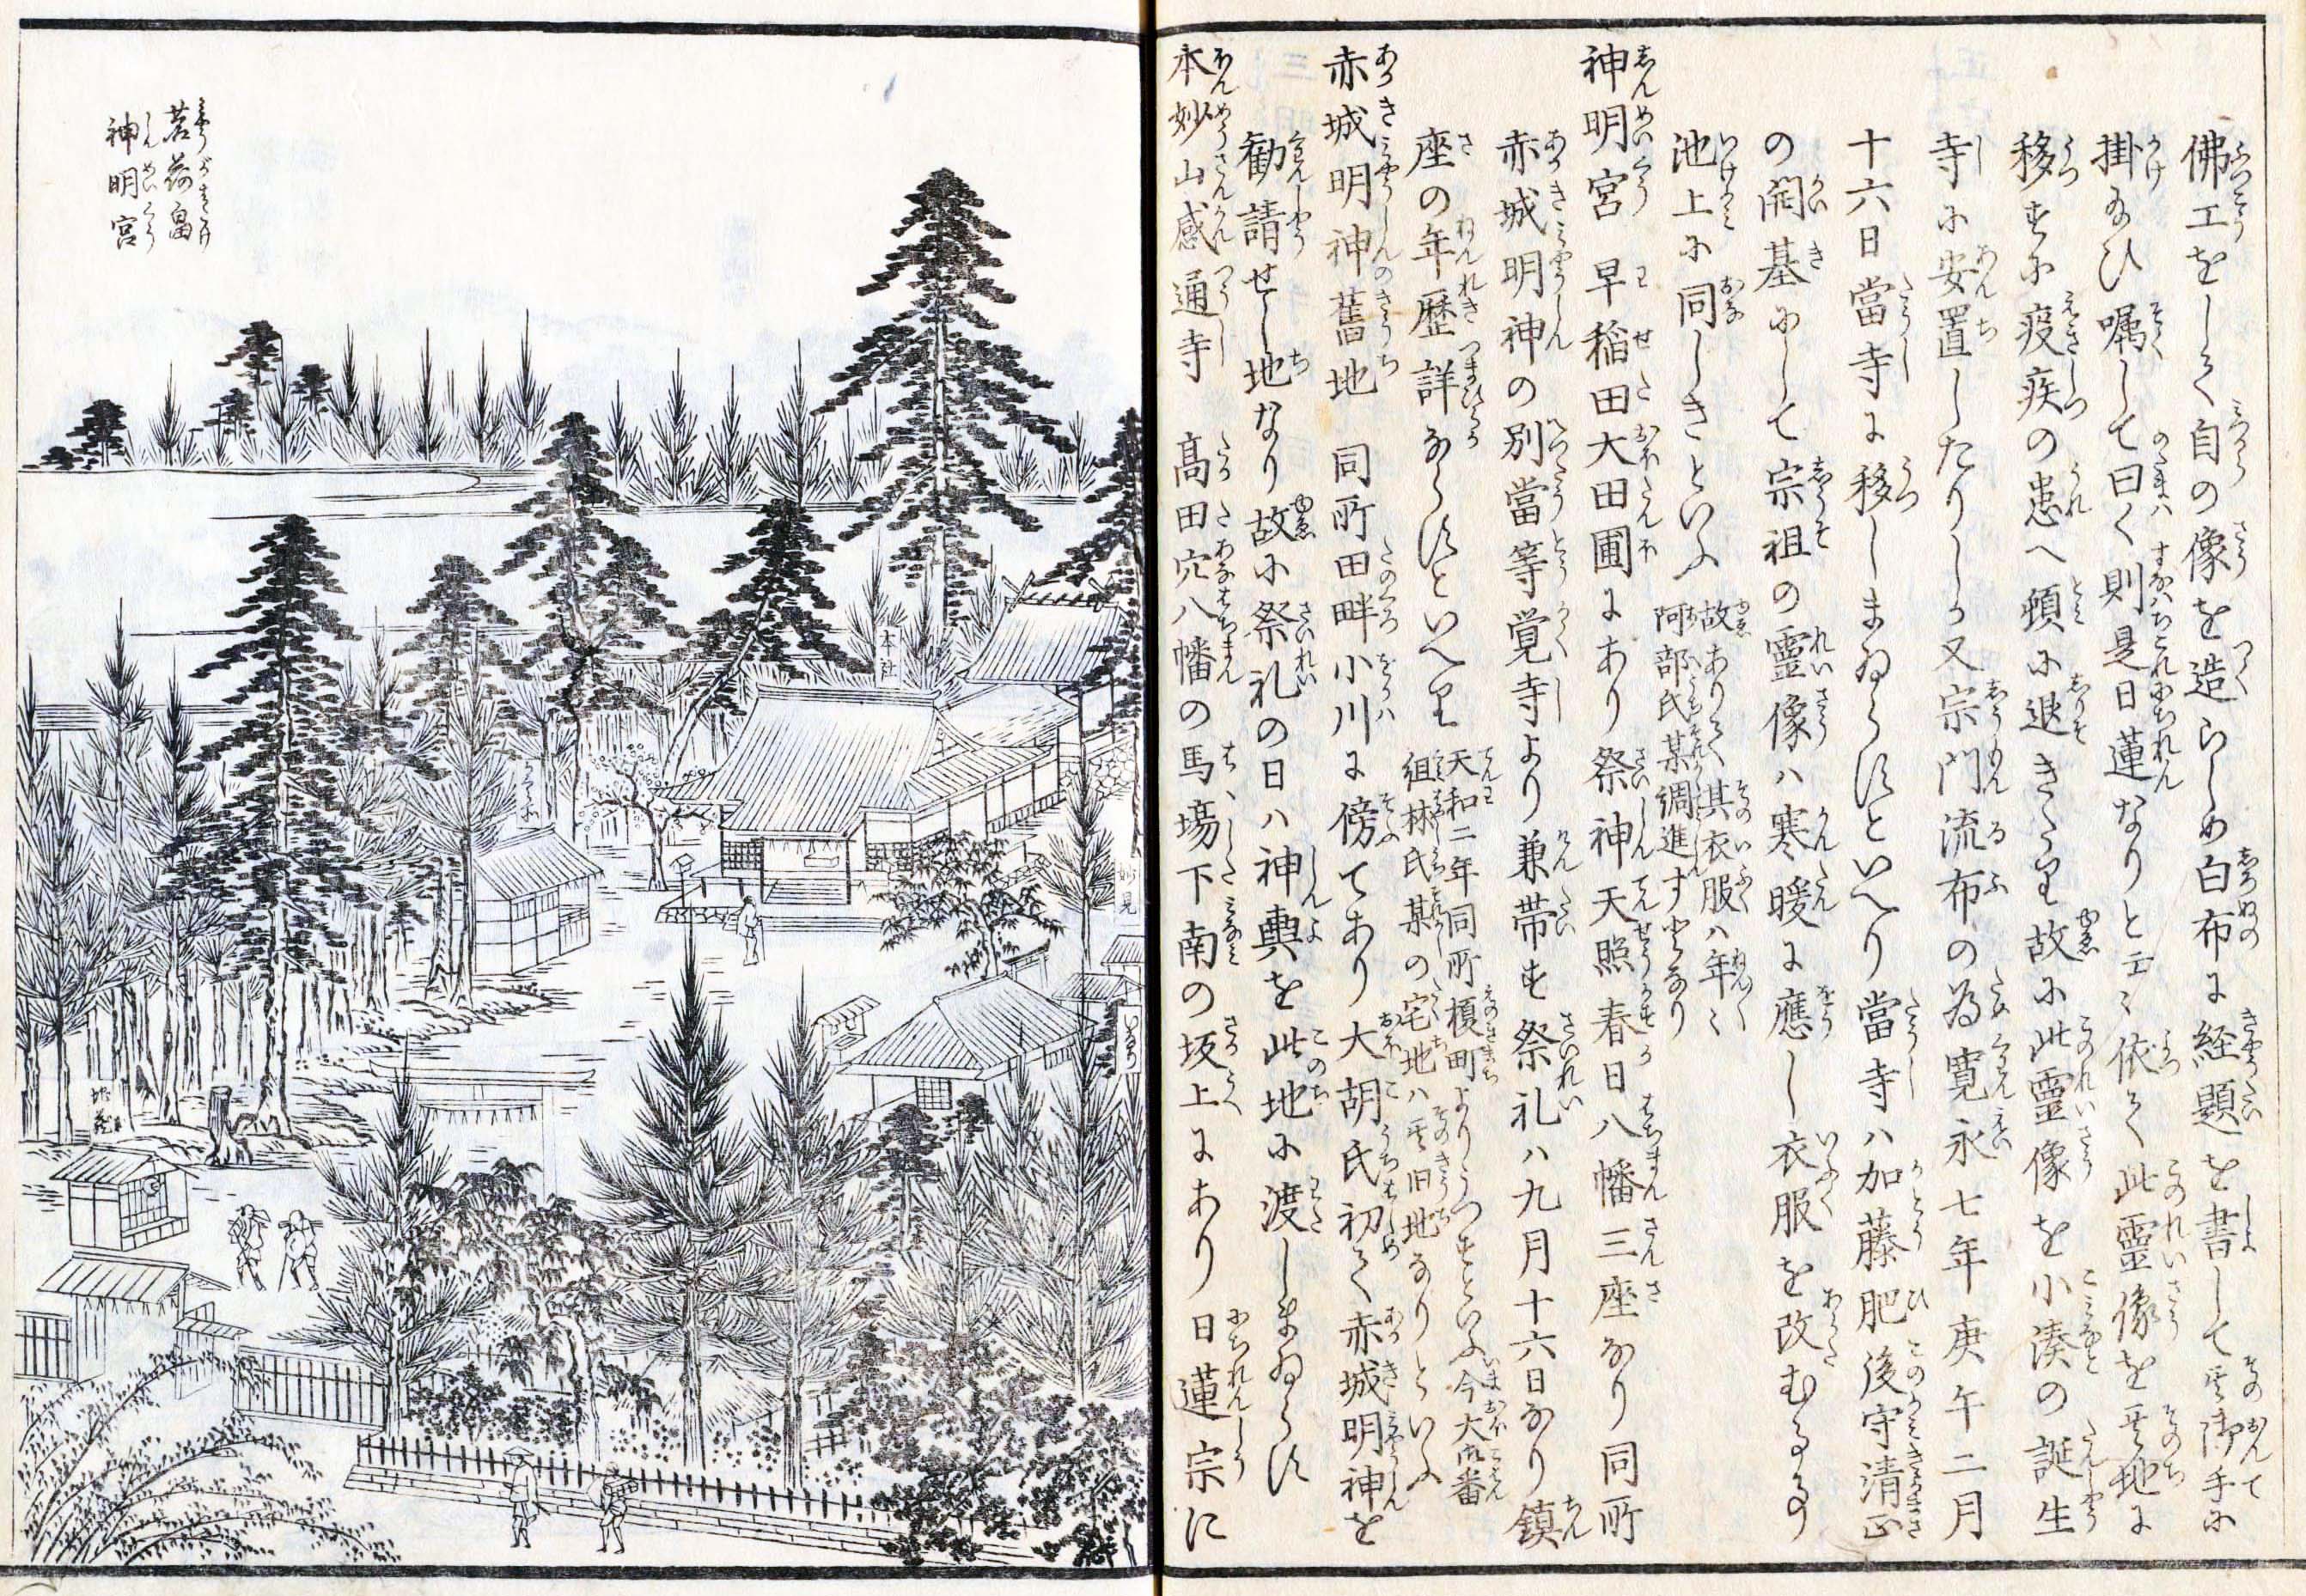 佛工をして自の像を造らしめ白布に経題を書して其御手に
掛給ひ嘱して曰く則是日蓮なりと云々依て此霊像を其地に
移すに疫疾の患へ頓に退きたり故に此靈像を小湊の誕生
寺に安置したりしか又宗門流布の為寛永七年庚午二月
十六日當寺に移しまゐらすといへり當寺ハ加藤肥後守清正
の開基にして宗祖の靈像ハ寒暖に應し衣服を改むる事
池上に同しきといふ
故ありて其衣服ハ年々
阿部氏某調進す事なり
神明宮 早稲田大田圃にあり祭神天照春日八幡三座なり同所
赤城明神の別當等覚寺より兼帯す祭礼ハ九月十六日なり鎮
座の年歴詳ならすといへり
天和二年同所榎町よりうつすといふ今大御番
組林氏某の宅地ハ其旧地なりといふ
赤城明神舊地 同所田畔小川に傍てあり大胡氏初て赤城明神を
勧請せし地なり故に祭礼の日ハ神輿を此地に渡しまゐらす
本妙山感通寺 髙田穴八幡の馬塲下南の坂上にあり日蓮宗に
茗荷畠
神明宮
本社
妙見
いなり
地蔵